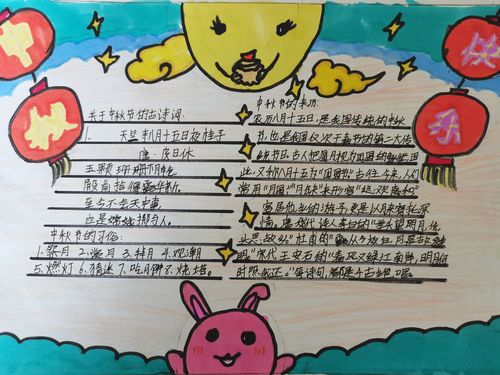 中
秋
快
乐
关于中秋节的古诗词:
1. 天竺寺八月十五日夜桂子
唐·皮日休
玉颗珊珊下月轮,
殿前拾得露华新。
至今不会天中事,
应是嫦娥掷与人。
中秋节的习俗:
1.祭月 2.赏月 3.拜月 4.观潮
5.燃灯 6.猜迷 7.吃月饼 8.烧塔。
中秋节的来历:
农历八月十五日,是我国传统的中秋
节,也是我国仅次于春节的第二大传
统节日。古人把圆月视为团圆的象征,因
此,又称八月十五为"团圆节"。古往今来,人们
常用"月圆""月缺"来形容"悲欢离合"
客居他乡的游子,更是以月来寄托深
情。唐代诗人李白的"举头望明月,低
头思故乡"杜甫的"露从今夜白,月是故乡
明。"宋代王安石的"春风又绿江南岸,明月何
时照我还。"等诗句,都是千古绝唱。